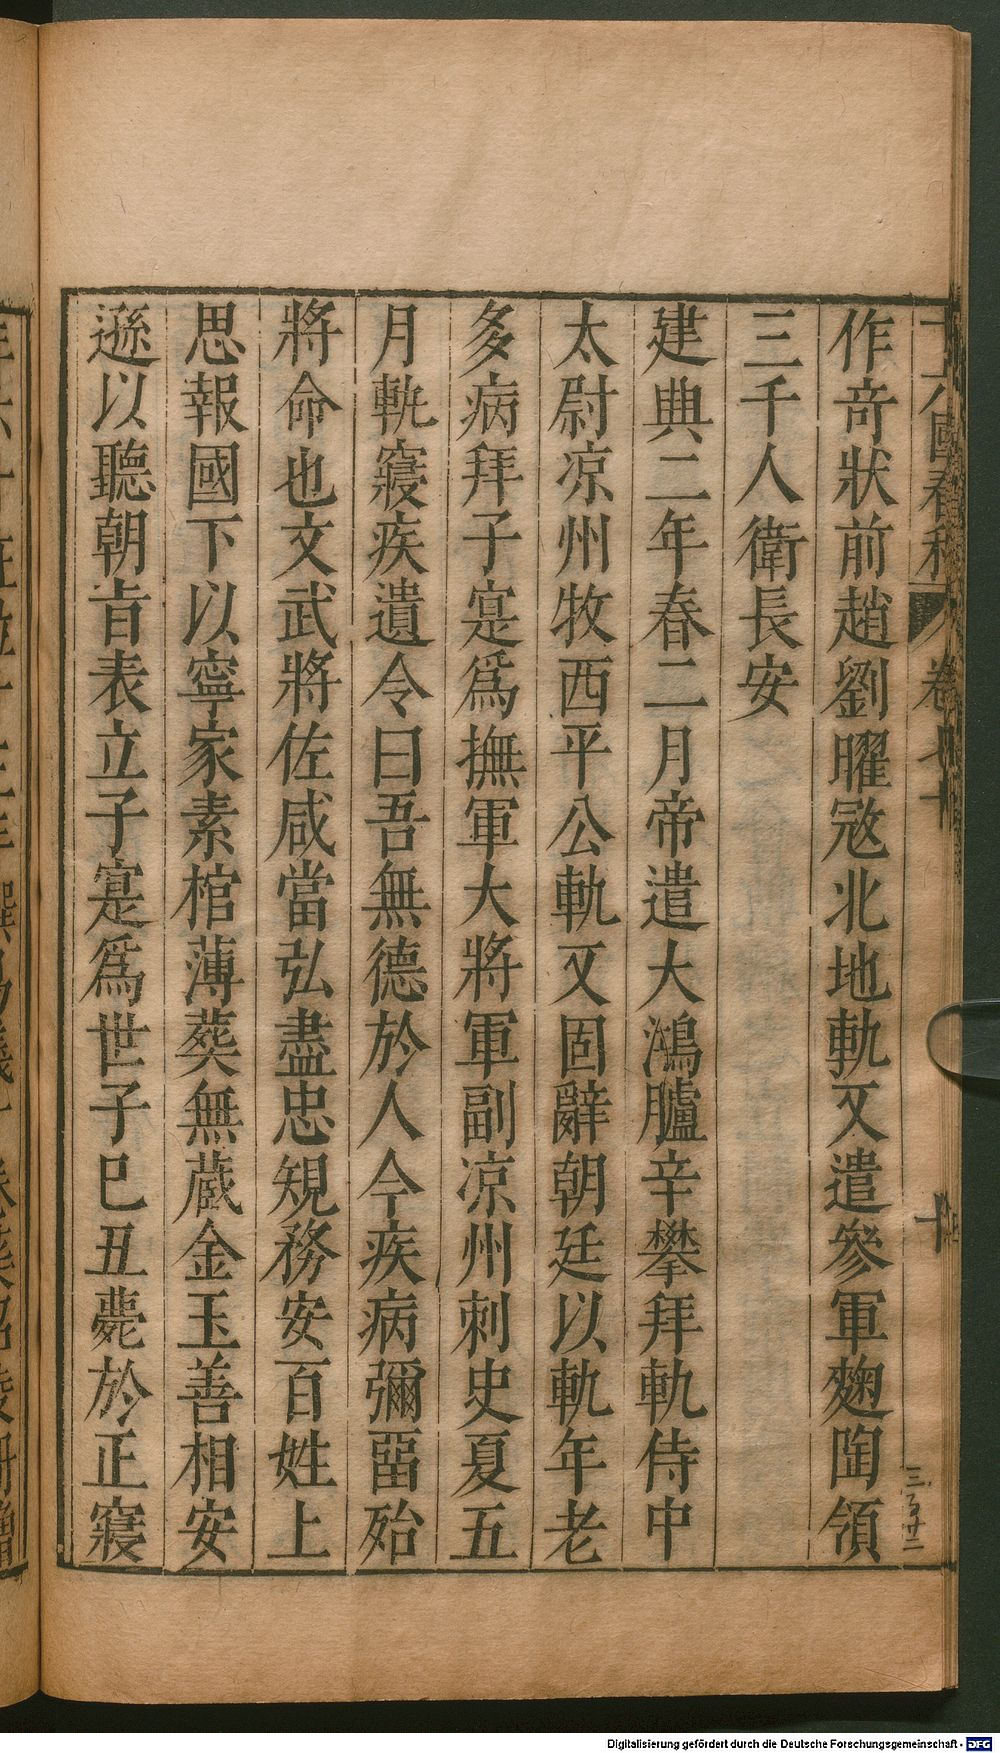 十六國春秋 卷七十 十
作奇狀前趙劉曜宼北地軌又遣參軍麴陶領
三千人衛長安
建興二年春二月帝遣大鴻臚辛攀拜軌侍中
太尉凉州牧西平公軌又固辭朝廷以軌年老
多病拜子寔爲撫軍大將軍副凉州刺史夏五
月軌寢疾遺令曰吾無德於人今疾病彌畱殆
將命也文武將佐咸當弘盡忠規務安百姓上
思報國下以寧家素棺薄葬無蔵金玉善相安
遜以聽朝旨表立子寔爲世子巳丑薨於正寢
Digitalisierung gefördert durch die Deutsche Forschungsgemeinschaft - DFG